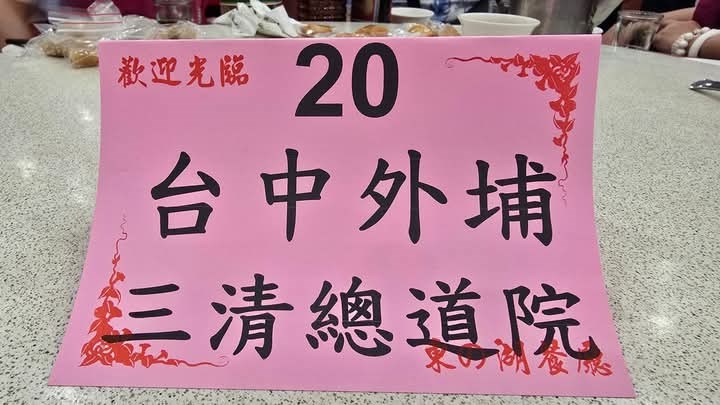 歡迎光臨
20
台中外埔
三清總道院
東的湖餐廳